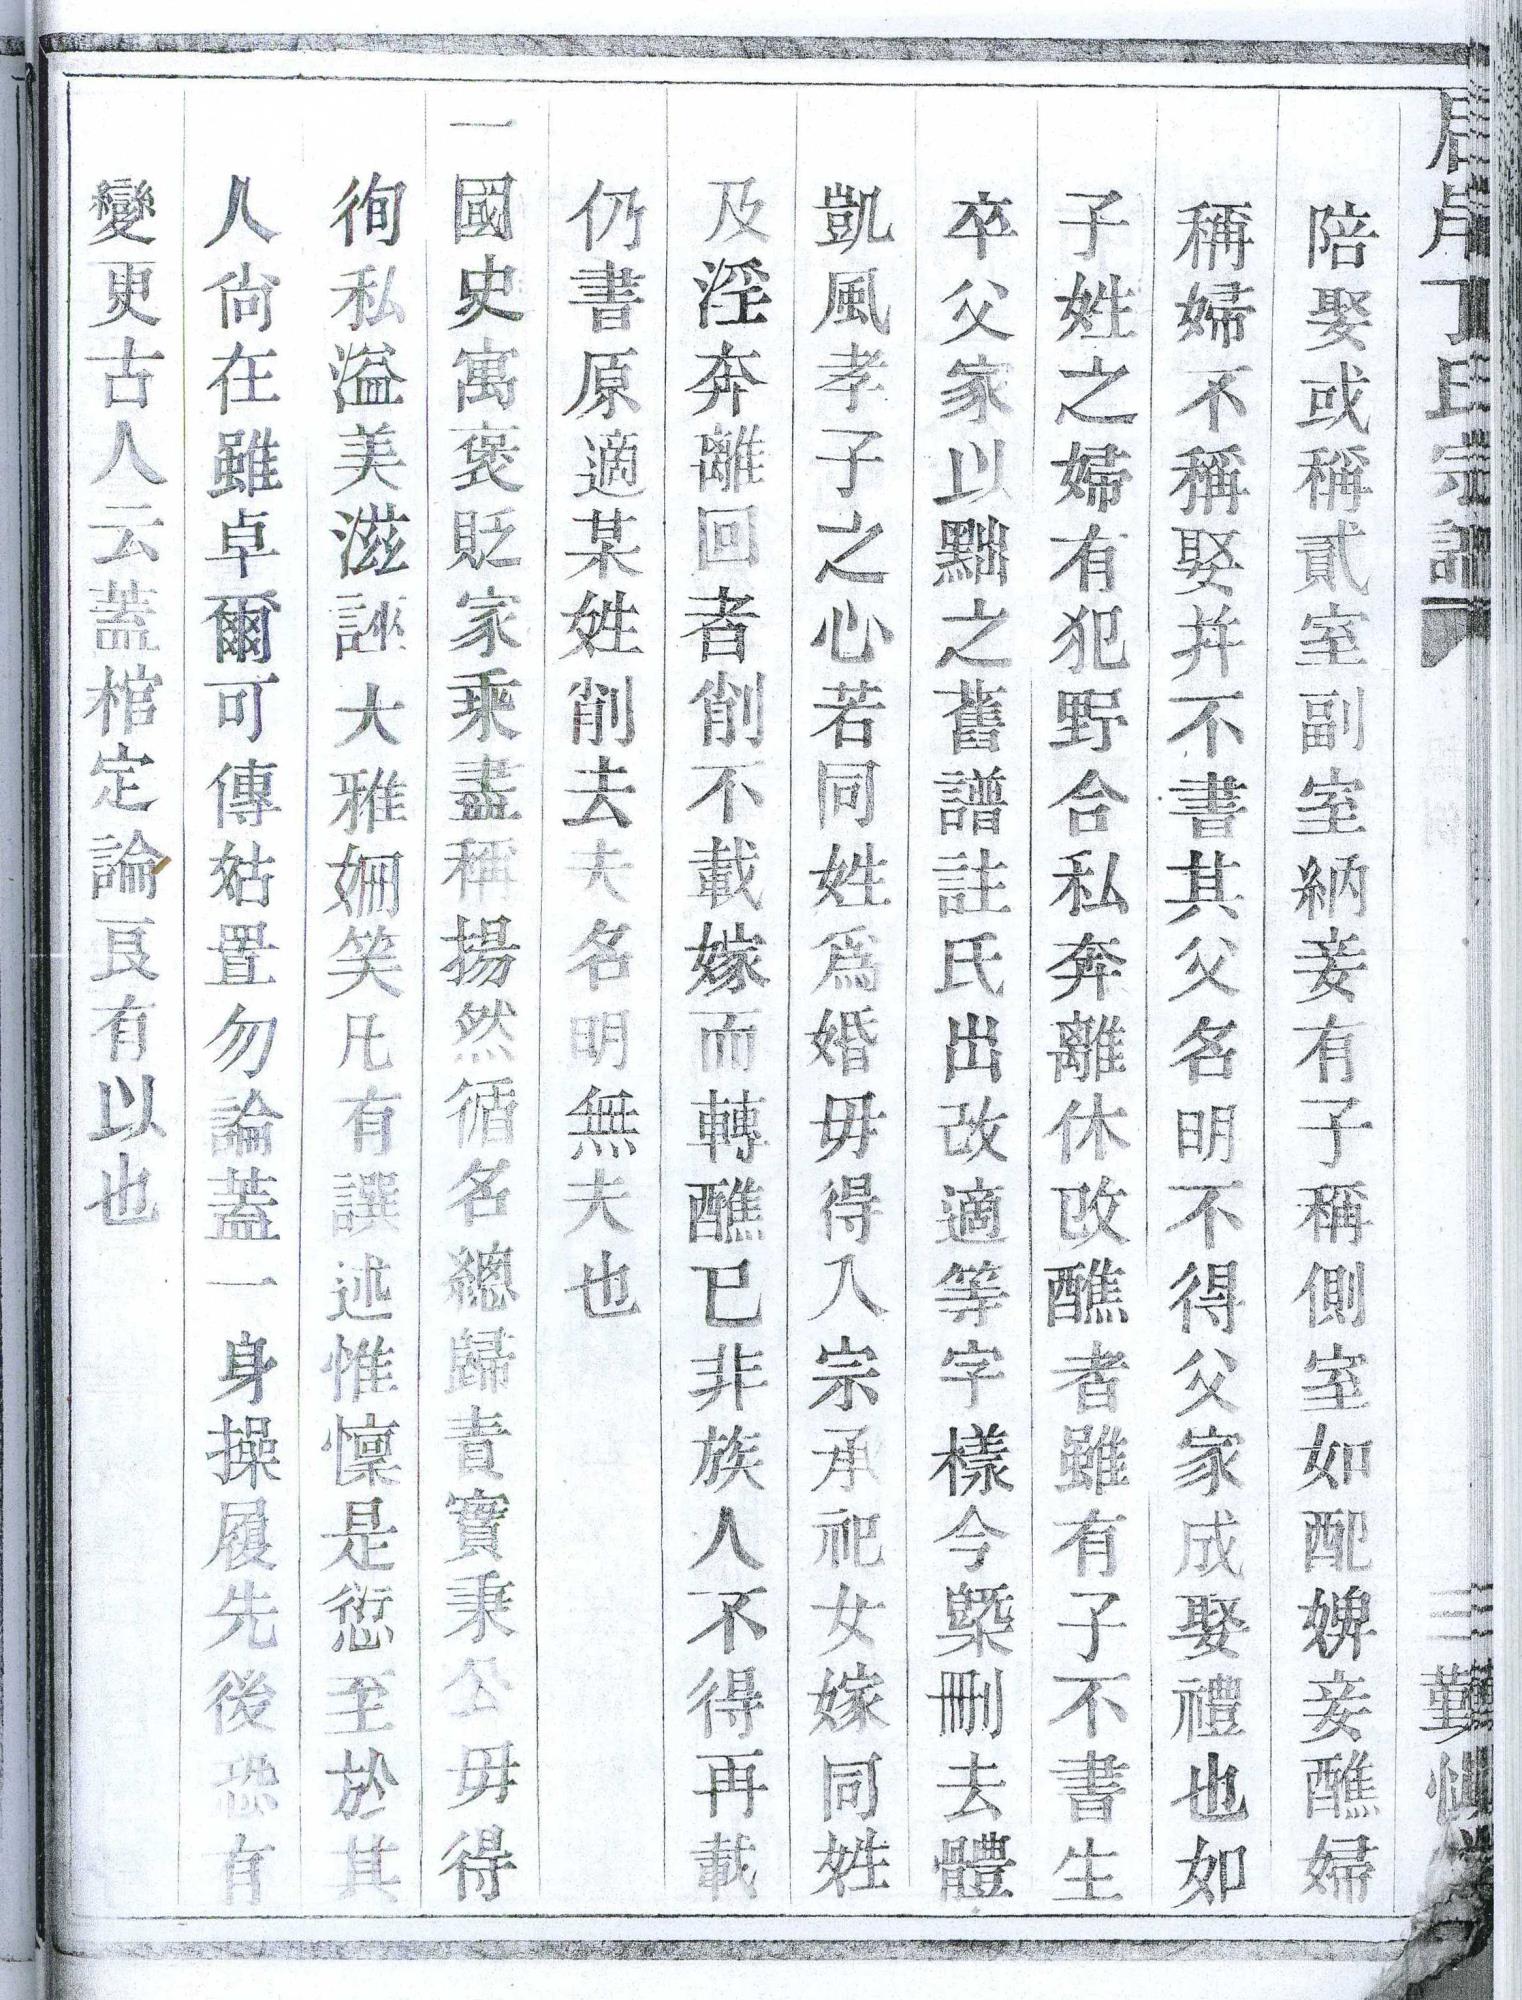 丁氏宗譜 三 勤慎
陪娶或稱貳室副室納妾有子稱側室如配婢妾醮婦
稱婦不稱娶并不書其父名明不得父家成娶禮也如
子姓之婦有犯野合私奔離休改醮者雖有子不書生
卒父家以黜之舊譜註氏出改適等字樣今槩刪去體
凱風孝子之心若同姓爲婚毋得入宗承祀女嫁同姓
及淫奔離回者削不載嫁而轉醮已非族人不得再載
仍書原適某姓削去夫名明無夫也
一國史寓褒貶家乘盡稱揚然循名總歸責實秉公毋得
徇私溢美滋誣大雅姍笑凡有譔述惟懍是愆至於其
人尙在雖卓爾可傳姑置勿論蓋一身操履先後恐有
變更古人云蓋棺定論良有以也